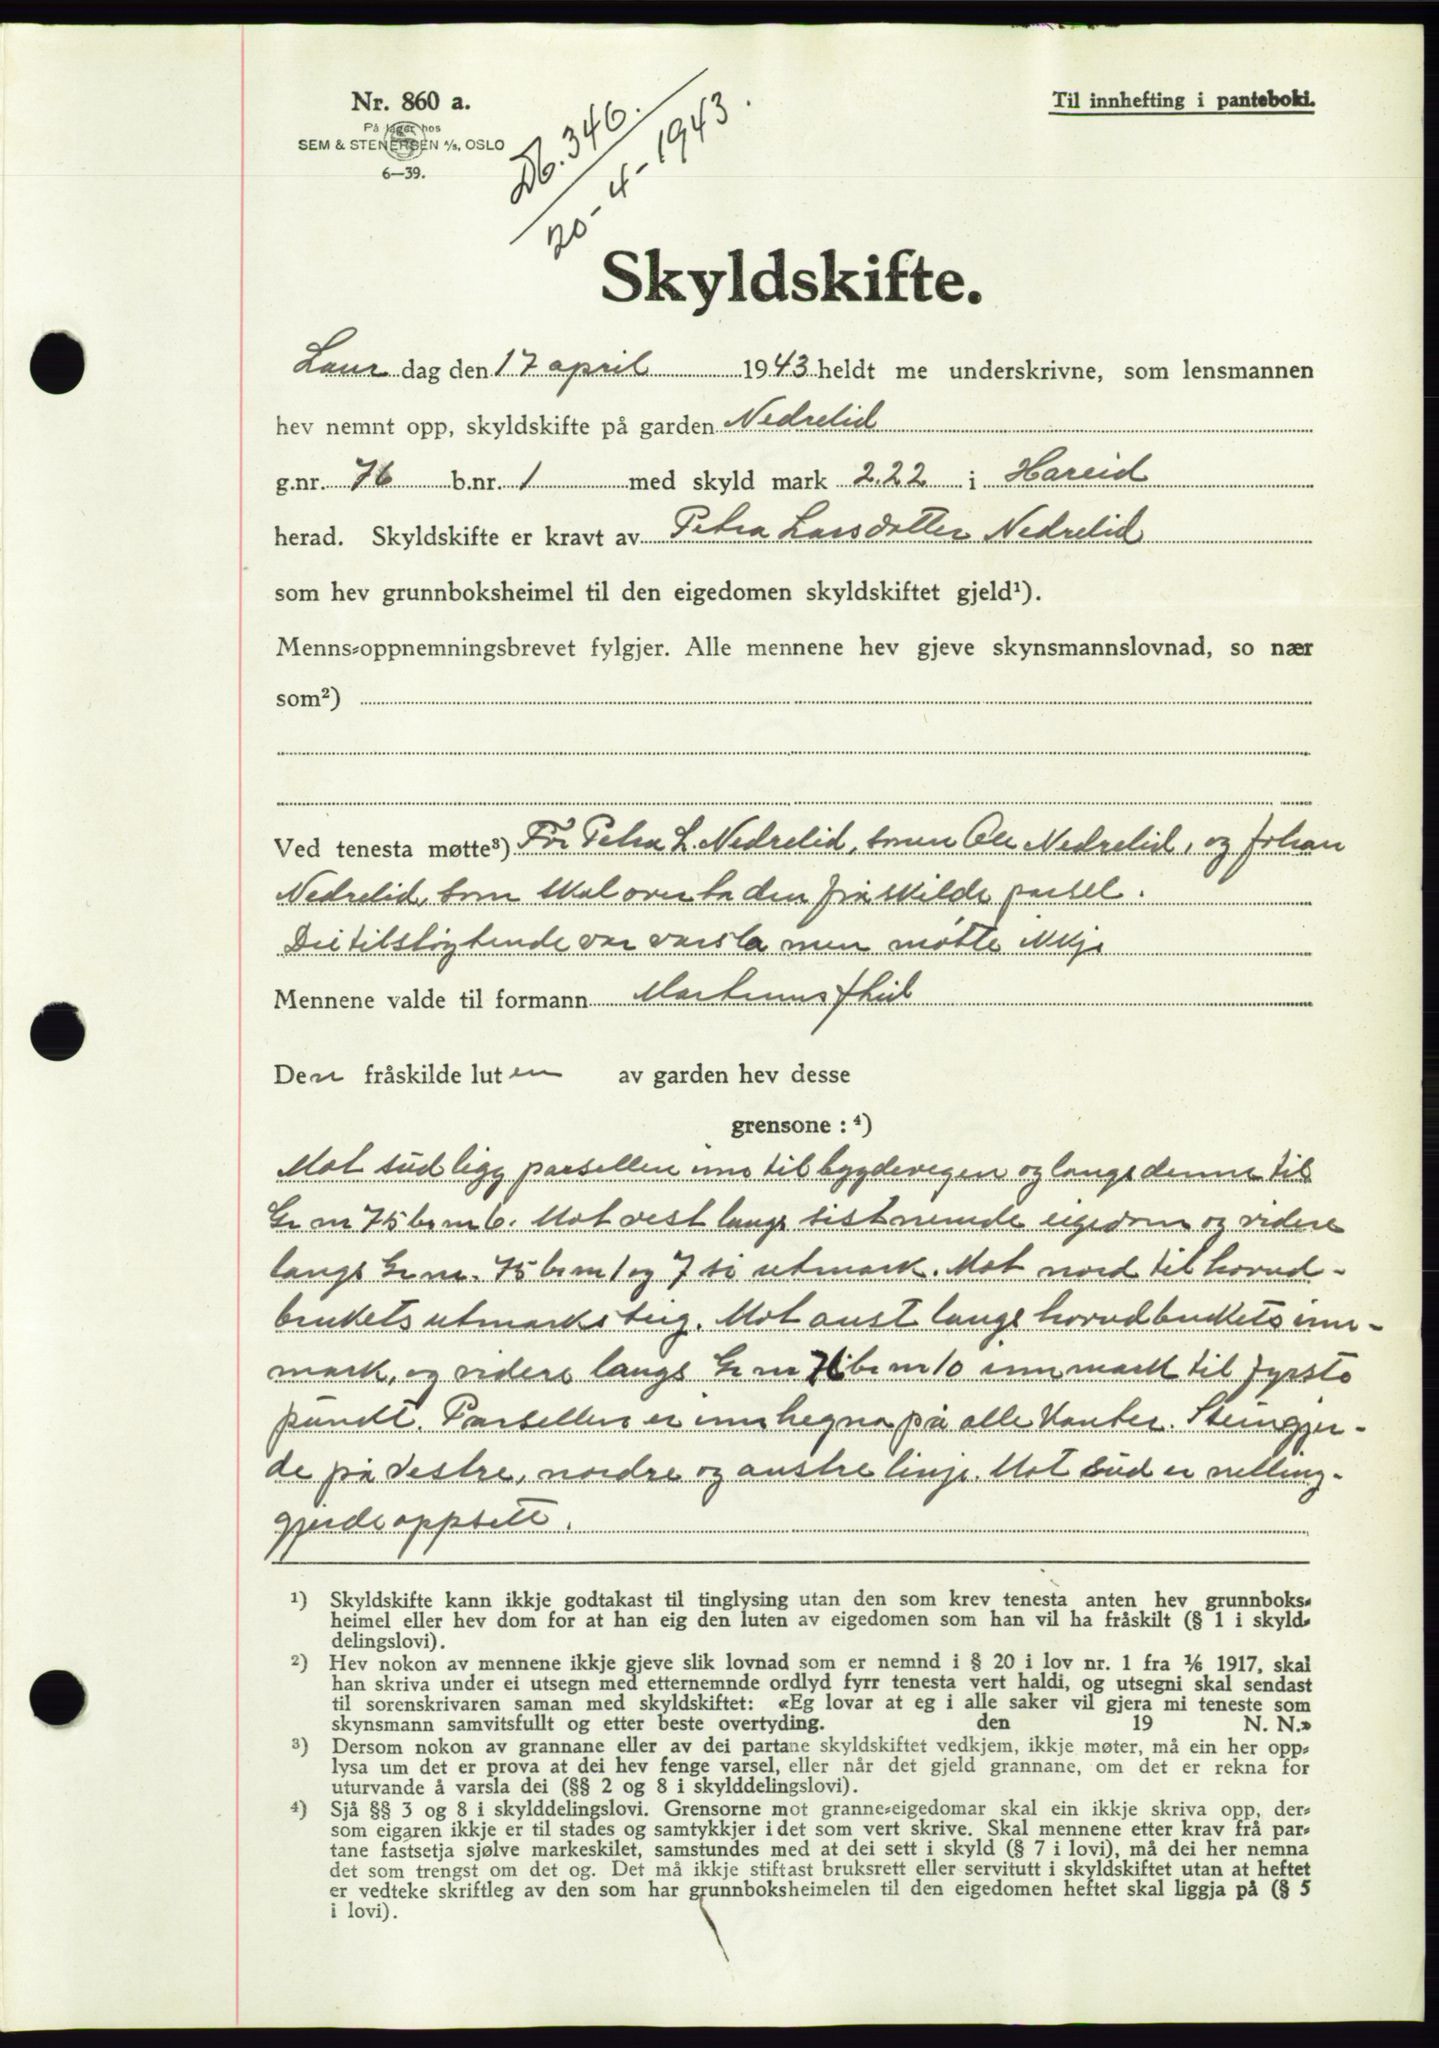 Nr. 860 a.
På lager hos
SEM & STENERSEN A/S, OSLO
6—39.
Db. 346.
20-4-1943.
Til innhefting i panteboki.
Skyldskifte.
Laur dag den 17 april 1943 heldt me underskrivne, som lensmannen
hev nemnt opp, skyldskifte på garden Nedrelid
g.nr. 76 b.nr. 1 med skyld mark 2.22 i Hareid
herad. Skyldskifte er kravt av Petra Larsdotter Nedrelid
som hev grunnboksheimel til den eigedomen skyldskiftet gjeld¹).
Menns-oppnemningsbrevet fylgjer. Alle mennene hev gjeve skynsmannslovnad, so nær
som²)
Ved tenesta møtte³) For Petra L. Nedrelid, sonen Ole Nedrelid, og Johan
Nedrelid, som skal overta den fråskilde parsel.
Dei tilstøytende var varsla men møtte ikkje
Mennene valde til formann Martinus
Den fråskilde luten av garden hev desse
grensone: ⁴)
Mot süd ligg parsellen inn til bygdevegen og langs denne til
Gr nr 75 br nr 6. Mot vest langs sistnemde eigedom og videre
langs Gr nr. 75 br nr 1 og 7 si utmark. Mot nord til hovud-
brukets utmarksteig. Mot aust langs hovudbrukets inn-
mark, og videre langs Gr nr 76 br nr 10 innmark til fyrste
punkt. Parsellen er innhegna på alle kanter. Steingjer-
de på vestre, nordre og austre linje. Mot süd er netting-
gjerde oppsett.
¹) Skyldskifte kann ikkje godtakast til tinglysing utan den som krev tenesta anten hev grunnboks-
heimel eller hev dom for at han eig den luten av eigedomen som han vil ha fråskilt (§ 1 i skyld-
delingslovi).
²) Hev nokon av mennene ikkje gjeve slik lovnad som er nemnd i § 20 i lov nr. 1 fra 1/6 1917, skal
han skriva under ei utsegn med etternemnde ordlyd fyrr tenesta vert haldi, og utsegni skal sendast
til sorenskrivaren saman med skyldskiftet: «Eg lovar at eg i alle saker vil gjera mi teneste som
skynsmann samvitsfullt og etter beste overtyding. den 19 N. N.»
³) Dersom nokon av grannane eller av dei partane skyldskiftet vedkjem, ikkje møter, må ein her opp-
lysa um det er prova at dei hev fenge varsel, eller når det gjeld grannane, om det er rekna for
uturvande å varsla dei (§§ 2 og 8 i skylddelingslovi).
⁴) Sjå §§ 3 og 8 i skylddelingslovi. Grensorne mot granne-eigedomar skal ein ikkje skriva opp, der-
som eigaren ikkje er til stades og samtykkjer i det som vert skrive. Skal mennene etter krav frå par-
tane fastsetja sjølve markeskilet, samstundes med at dei sett i skyld (§ 7 i lovi), må dei her nemna
det som trengst om det og. Det må ikkje stiftast bruksrett eller servitutt i skyldskiftet utan at heftet
er vedteke skriftleg av den som har grunnboksheimelen til den eigedomen heftet skal liggja på (§ 5
i lovi).